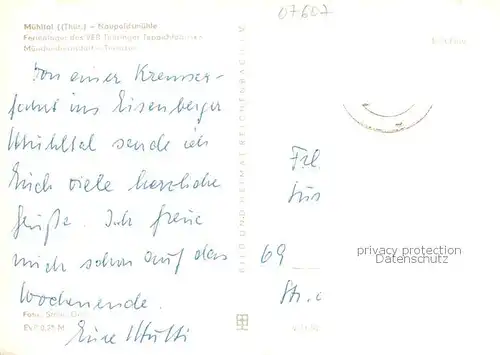 Mühltal (Thür.) – Naupoldsmühle
Ferienlager des VEB Thüringer Teppichfabriken
Münchenbernsdorf
07607
Von einer Kremser-
fahrt ins Eisenberger
Mühltal sende ich
Euch viele herzliche
Grüße. Ich freue
mich schon auf das
Wochenende.
Eure Mutti
Foto:
EVP 0,25 M
BILD UND HEIMAT REICHENBACH
Frl.
69
Str.
privacy protection
Datenschutz